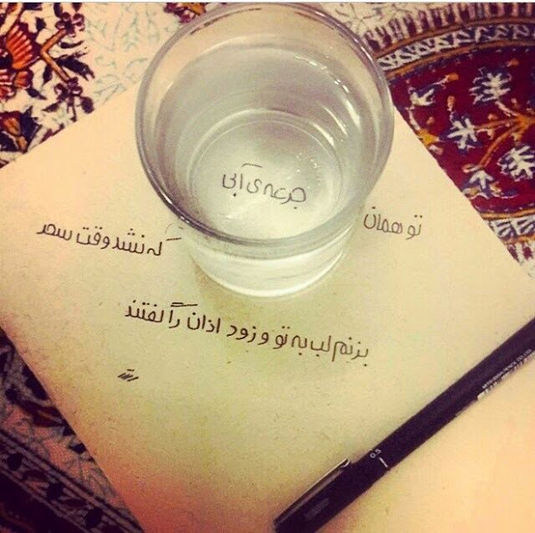 تو همان جرعه‌ی آبی که نشد وقت سحر
بزنم لب به تو و زود اذان را گفتند
0.5